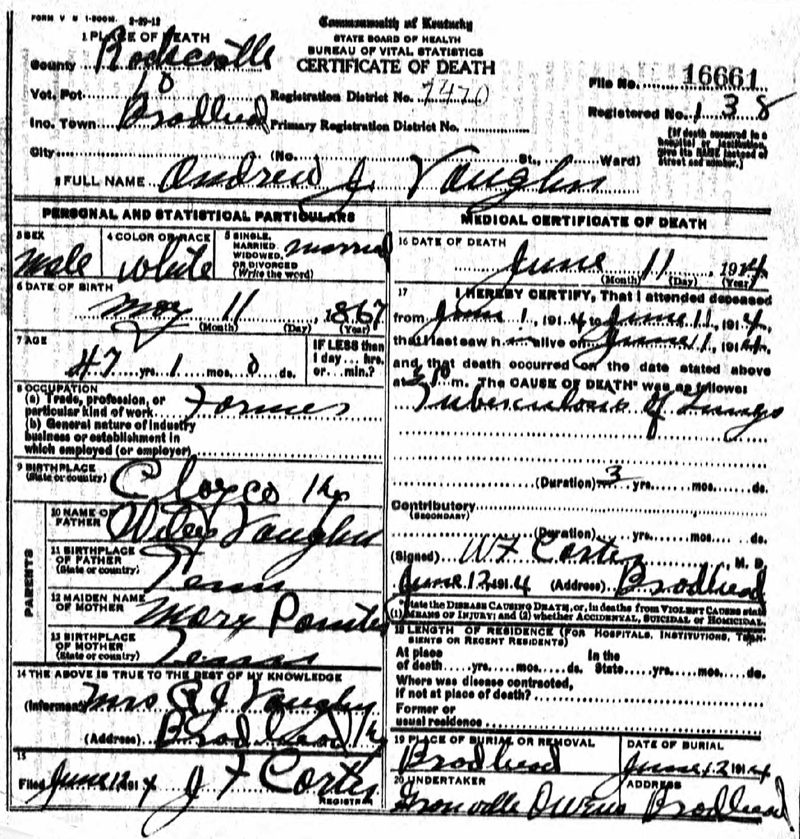 FORM V S 1-500M. 2-29-12
Commonwealth of Kentucky
STATE BOARD OF HEALTH
BUREAU OF VITAL STATISTICS
CERTIFICATE OF DEATH
1 PLACE OF DEATH
County Rockcastle
Vot. Pct 10
Inc. Town Brodhead
City
Registration District No. 7470
Primary Registration District No.
File No. 16661
Registered No. 138
(No. St., Ward)
[If death occurred in a
hospital or institution,
give its NAME instead of
street and number.]
2 FULL NAME Andrew J. Vaughn
PERSONAL AND STATISTICAL PARTICULARS
3 SEX
Male
4 COLOR OR RACE
White
5 SINGLE,
MARRIED,
WIDOWED,
OR DIVORCED
(Write the word)
Married
6 DATE OF BIRTH
May 11, 1867
(Month) (Day) (Year)
7 AGE
47 yrs. 1 mos. 0 ds.
IF LESS than
1 day ... hrs.
or ... min.?
8 OCCUPATION
(a) Trade, profession, or
particular kind of work Farmer
(b) General nature of industry
business or establishment in
which employed (or employer)
9 BIRTHPLACE
(State or country) Clay co Ky
PARENTS
10 NAME OF
FATHER Wiley Vaughn
11 BIRTHPLACE
OF FATHER
(State or country) Tenn
12 MAIDEN NAME
OF MOTHER Mary
13 BIRTHPLACE
OF MOTHER
(State or country) Tenn
14 THE ABOVE IS TRUE TO THE BEST OF MY KNOWLEDGE
(Informant) Mrs A J Vaughn
(Address) Brodhead Ky
15
Filed June 12 1914 J F Carter
REGISTRAR
MEDICAL CERTIFICATE OF DEATH
16 DATE OF DEATH
June 11, 1914
(Month) (Day) (Year)
17 I HEREBY CERTIFY, That I attended deceased
from June 1, 1914 to June 11, 1914,
that I last saw him alive on June 11, 1914,
and that death occurred on the date stated above
at m. The CAUSE OF DEATH* was as follows:
Tuberculosis of Lungs
(Duration) 3 yrs. mos. ds.
Contributory
(SECONDARY)
(Duration) yrs. mos. ds.
(Signed) W F Carter M. D.
June 12, 1914 (Address) Brodhead
*State the DISEASE CAUSING DEATH, or, in deaths from VIOLENT CAUSES state
(1) MEANS OF INJURY; and (2) whether ACCIDENTAL, SUICIDAL or HOMICIDAL.
18 LENGTH OF RESIDENCE (FOR HOSPITALS, INSTITUTIONS, TRAN-
SIENTS OR RECENT RESIDENTS)
At place In the
of death yrs. mos. ds. State yrs. mos. ds.
Where was disease contracted,
if not at place of death?
Former or
usual residence
19 PLACE OF BURIAL OR REMOVAL
Brodhead
DATE OF BURIAL
June 12 1914
20 UNDERTAKER
Granville Owens
ADDRESS
Brodhead